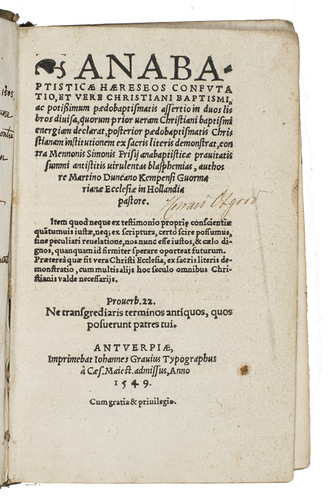 ANABA-
PTISTICÆ HÆRESEOS CONFVTA
TIO, ET VERE CHRISTIANI BAPTISMI,
ac potißimum pædobaptismatis assertio in duos li
bros diuisa, quorum prior ueram Christiani baptismi
energiam declarat, posterior pædobaptismatis Chris
stianam institutionem ex sacris literis demonstrat, con
tra Mennonis Simonis Frisij anabaptisticæ prauitatis
summi antistitis uirulentas blasphemias, autho
re Martino Duncano Kempensi Guorma
rianæ Ecclesiæ in Hollandia
pastore.
Item quod neque ex testimonio propriæ conscientiæ
quātumuis iustæ, neq; ex scriptura, certo scire possumus,
sine peculiari reuelatione, nos nunc esse iustos, & cælo di
gnos, quanquam id firmiter sperare oporteat futurum.
Præterea quæ sit vera Christi Ecclesia, ex sacris literis de
monstratio, cum multis alijs hoc sæculo omnibus Chri
stianis valde necessarijs.
Prouerb. 22.
Ne transgrediaris terminos antiquos, quos
posuerunt patres tui.
ANTVERPIÆ,
Imprimebat Iohannes Grauius Typographus
à Cæs. Maiest. admissus, Anno
1549.
Cum gratia & priuilegio.